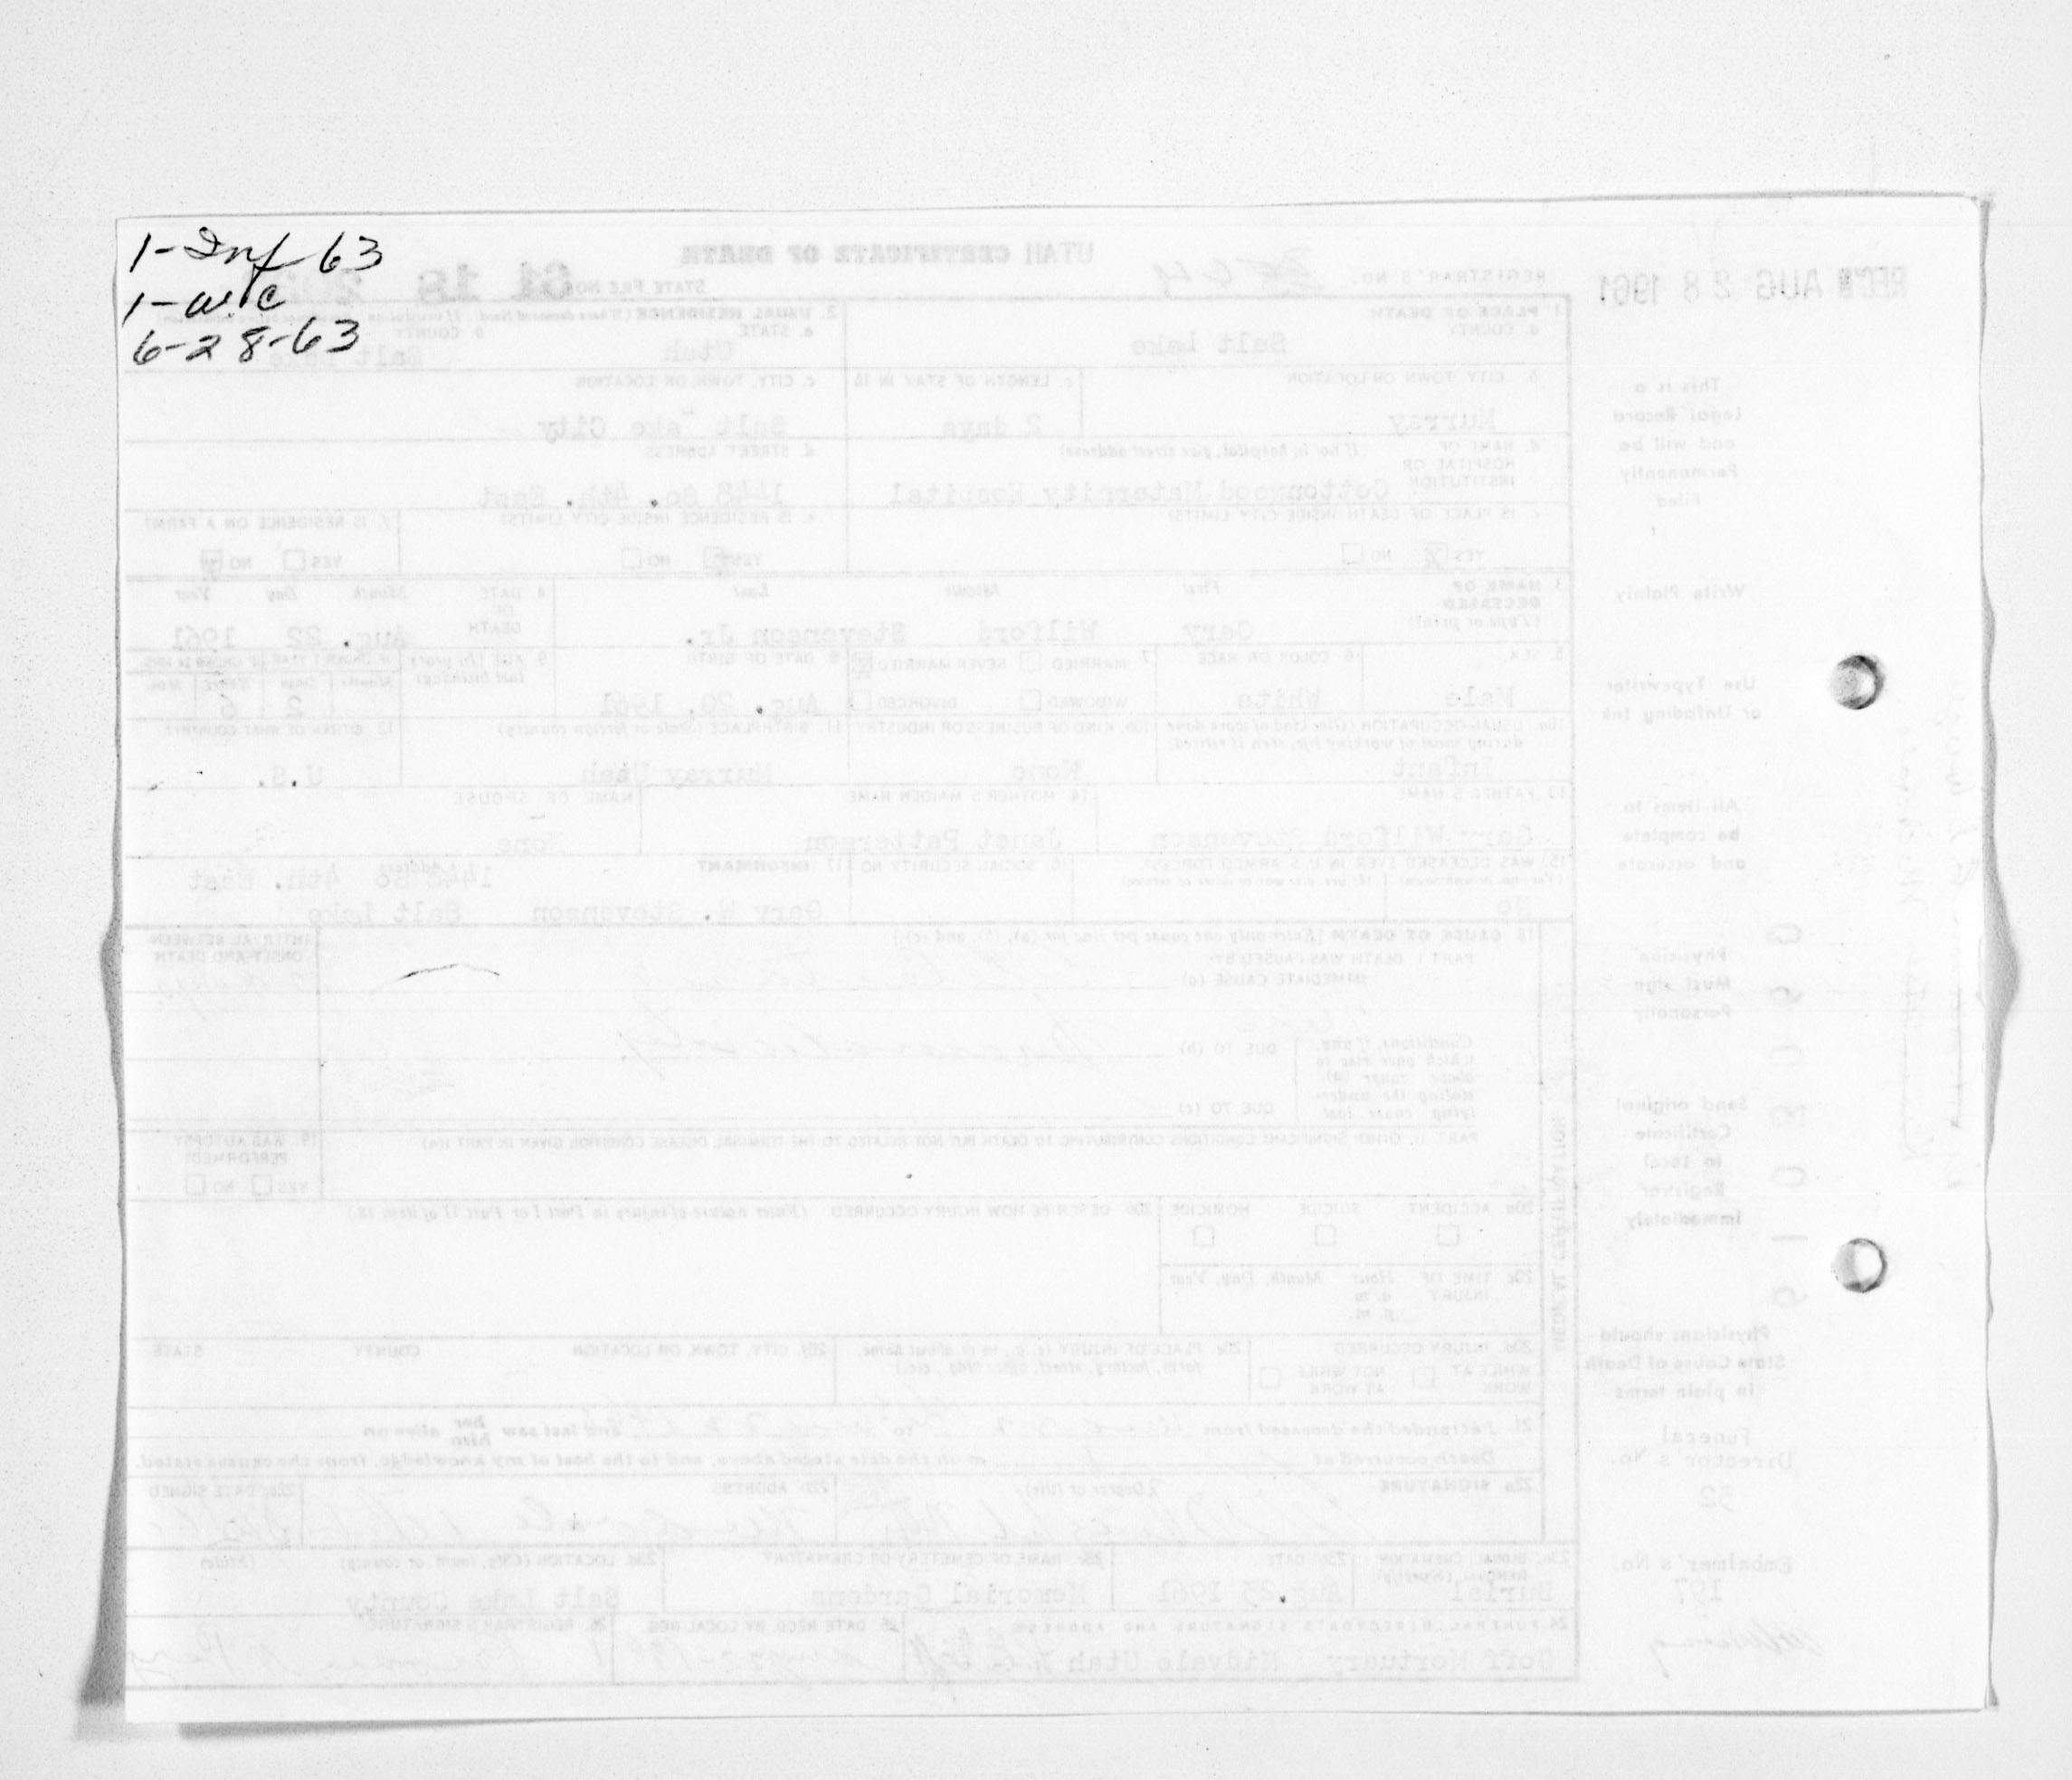 1-Inf 63
1-W.C
6-28-63
UTAH CERTIFICATE OF DEATH
REC'D AUG 28 1961
REGISTRAR'S NO.
STATE FILE NO. 61 18
1. PLACE OF DEATH
a. COUNTY
Salt Lake
2. USUAL RESIDENCE
a. STATE
Utah
b. COUNTY
Salt Lake
b. CITY, TOWN OR LOCATION
Murray
c. LENGTH OF STAY IN 1b
2 days
c. CITY, TOWN OR LOCATION
Salt Lake City
d. NAME OF HOSPITAL OR INSTITUTION
(If not in hospital, give street address)
Cottonwood Maternity Hospital
d. STREET ADDRESS
1448 So. 4th. East
e. IS PLACE OF DEATH INSIDE CITY LIMITS?
YES NO
e. IS RESIDENCE INSIDE CITY LIMITS?
YES NO
f. IS RESIDENCE ON A FARM?
YES NO
3. NAME OF DECEASED
(Type or print)
First Middle Last
Gary Wilford Stevenson Jr.
4. DATE OF DEATH
Month Day Year
Aug. 22 1961
5. SEX
Male
6. COLOR OR RACE
White
7. MARRIED NEVER MARRIED
WIDOWED DIVORCED
8. DATE OF BIRTH
Aug. 20, 1961
9. AGE (In years last birthday)
IF UNDER 1 YEAR IF UNDER 24 HRS.
Months Days Hours Min.
2 6
10a. USUAL OCCUPATION (Give kind of work done during most of working life, even if retired)
Infant
10b. KIND OF BUSINESS OR INDUSTRY
None
11. BIRTHPLACE (State or foreign country)
Murray Utah
12. CITIZEN OF WHAT COUNTRY?
U.S.
13. FATHER'S NAME
Gary Wilford Stevenson
14. MOTHER'S MAIDEN NAME
Janet Patterson
NAME OF SPOUSE
None
15. WAS DECEASED EVER IN U.S. ARMED FORCES?
No
16. SOCIAL SECURITY NO.
17. INFORMANT
Address
1448 So 4th. East
Gary W. Stevenson Salt Lake
18. CAUSE OF DEATH [Enter only one cause per line for (a), (b), and (c).]
PART I. DEATH WAS CAUSED BY:
IMMEDIATE CAUSE (a)
INTERVAL BETWEEN ONSET AND DEATH
Conditions, if any, which gave rise to above cause (a), stating the underlying cause last
DUE TO (b)
DUE TO (c)
PART II. OTHER SIGNIFICANT CONDITIONS CONTRIBUTING TO DEATH BUT NOT RELATED TO THE TERMINAL DISEASE CONDITION GIVEN IN PART I(a)
19. WAS AUTOPSY PERFORMED?
YES NO
MEDICAL CERTIFICATION
20a. ACCIDENT SUICIDE HOMICIDE
20b. DESCRIBE HOW INJURY OCCURRED (Enter nature of injury in Part I or Part II of item 18)
20c. TIME OF INJURY
Hour Month, Day, Year
a. m.
p. m.
20d. INJURY OCCURRED
WHILE AT WORK
NOT WHILE AT WORK
20e. PLACE OF INJURY (e.g., in or about home, farm, factory, street, office bldg., etc.)
20f. CITY, TOWN OR LOCATION COUNTY STATE
21. I attended the deceased from to and last saw her him alive on
Death occurred at m on the date stated above, and to the best of my knowledge, from the causes stated.
22a. SIGNATURE
(Degree or title)
22b. ADDRESS
22c. DATE SIGNED
23a. BURIAL, CREMATION, REMOVAL (Specify)
Burial
23b. DATE
Aug. 23 1961
23c. NAME OF CEMETERY OR CREMATORY
Memorial Gardens
23d. LOCATION (City, town, or county) (State)
Salt Lake County
24. FUNERAL DIRECTOR'S SIGNATURE AND ADDRESS
Goff Mortuary Midvale Utah
25. DATE RECD. BY LOCAL REG.
26. REGISTRAR'S SIGNATURE
This is a
Legal Record
and will be
Permanently
Filed
Write Plainly
Use Typewriter
or Unfading Ink
All items to
be complete
and accurate
Physician
Must sign
Personally
Send original
Certificate
to Local
Registrar
Immediately
Physicians should
State Cause of Death
in plain terms
Funeral
Director's No.
52
Embalmer's No.
197